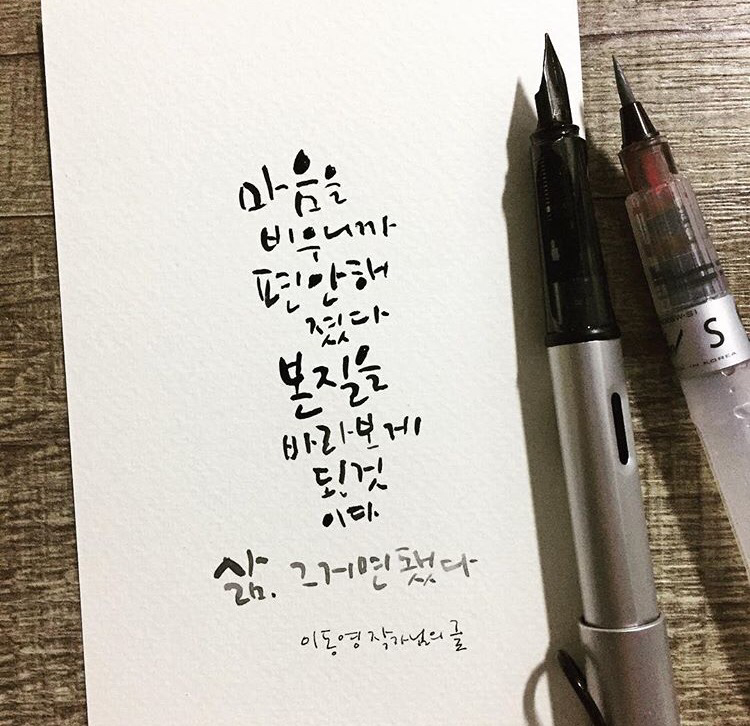 마음을
비우니까
편안해
졌다
본질을
바라보게
된것
이다
삶. 그거면 됐다
이동영 작가님의 글
S
IN KOREA